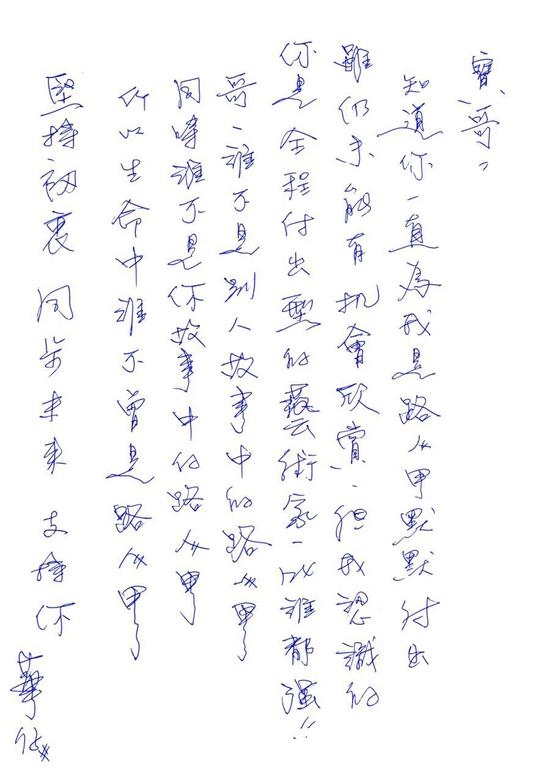 寶哥：
知道你一直為我是路人甲默默付出
雖仍未能有机會欣賞、但我認識的
你是全程付出型的藝術家－比誰都强!!
哥、誰不是別人故事中的路人甲
同時誰不是你故事中的路人甲
所以生命中誰不曾是路人甲
堅持初衷 同步未來 支持你
華仔